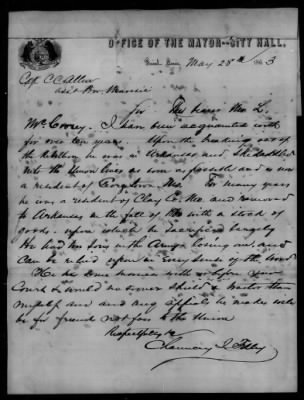 OFFICE OF THE MAYOR--CITY HALL,
May 28th 1863
Capt C C Allen
Sir The bearer Mr L.
McCorvey. I have been acquainted with
for over ten years. Upon the breaking out of
the Rebellion he was in Arkansas and Skedaddled
into the Union lines as soon as possible and is now
a resident of Mo. For many years
he was a resident of Clay Co. Mo and removed
to Arkansas in the fall of with a stock of
goods upon which he sacrificed largely
He had two sons in the Army losing one and
can be relied upon in every sense of the word
He has some business with
Court & would no sooner shield a traitor than
myself and any appeals he makes will
be for friends not foes to the Union
Respectfully &c
Chauncey I. Filley